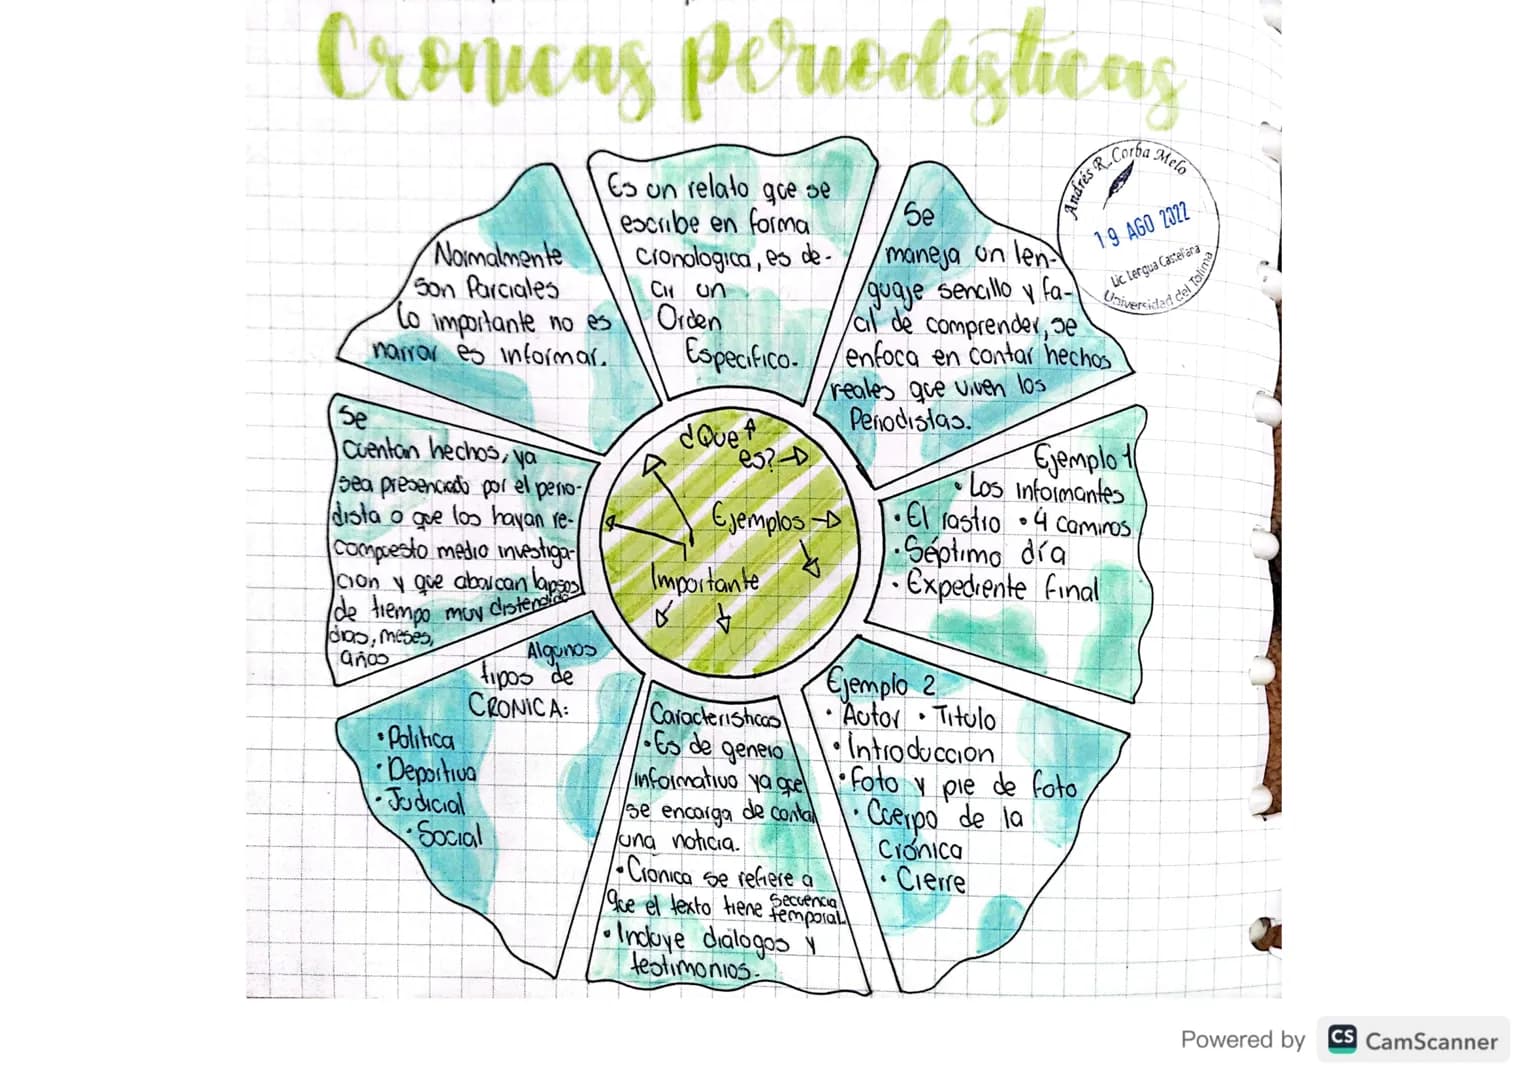 Cronicas periodisticas
Andrés R. Corba Melo
19 AGO 2022
Lic. Lengua Castellana
Universidad del Tolima
Es un relato que se
escribe en forma
cronologica, es de-
cir un
Orden
Especifico.
Se
maneja un len-
guaje sencillo y fa-
cil de comprender, se
enfoca en contar hechos
reales que viven los
Periodistas.
Ejemplo 1
• Los informantes
• El rastro • 4 caminos
• Séptimo día
• Expediente final
Ejemplo 2
• Autor • Titulo
• Introduccion
• Foto y pie de foto
• Cuerpo de la
Crónica
• Cierre
Caracteristicas
• Es de genero
informativo ya que
se encarga de contar
una noticia.
• Cronica se refiere a
que el texto tiene secuencia
temporal.
• Incluye dialogos y
testimonios.
Algunos
tipos de
CRONICA:
• Politica
• Deportiva
• Judicial
• Social
Se
cuentan hechos, ya
sea presenciado por el perio-
dista o que los hayan re-
compuesto medio investiga-
cion y que abarcan lapsos
de tiempo muy distendido
dias, meses,
años
Normalmente
son Parciales
Lo importante no es
narrar es informar.
¿Que
es?
Ejemplos
Importante
Powered by CS CamScanner